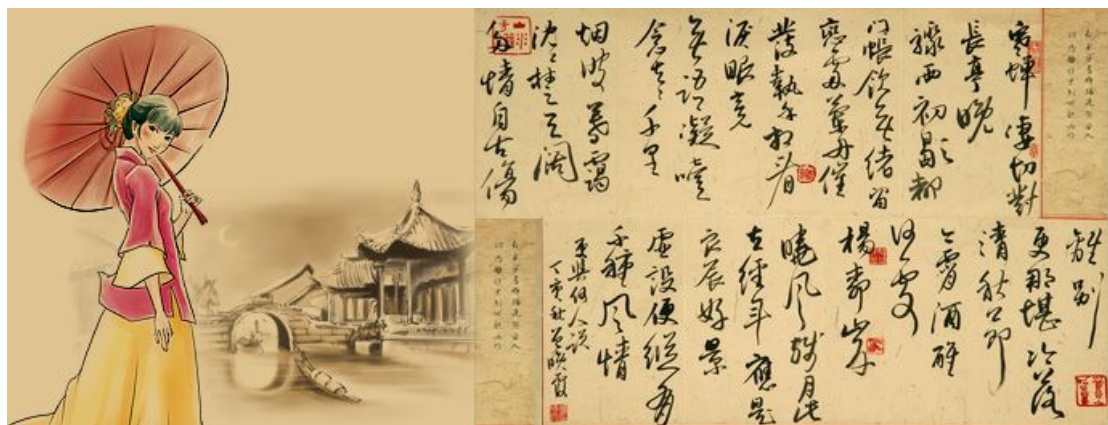 寒蟬淒切對
長亭晚
驟雨初歇都
门帳飲无緒留
戀處蘭舟催
發執手相看
淚眼竟
无語凝噎
念去去千里
烟波暮靄
沈沈楚天闊
多情自古傷
離別
更那堪冷落
清秋節
今宵酒醒
何處
楊柳岸
曉風殘月此
去經年應是
良辰好景
虛設便縱有
千種風情
更與何人說